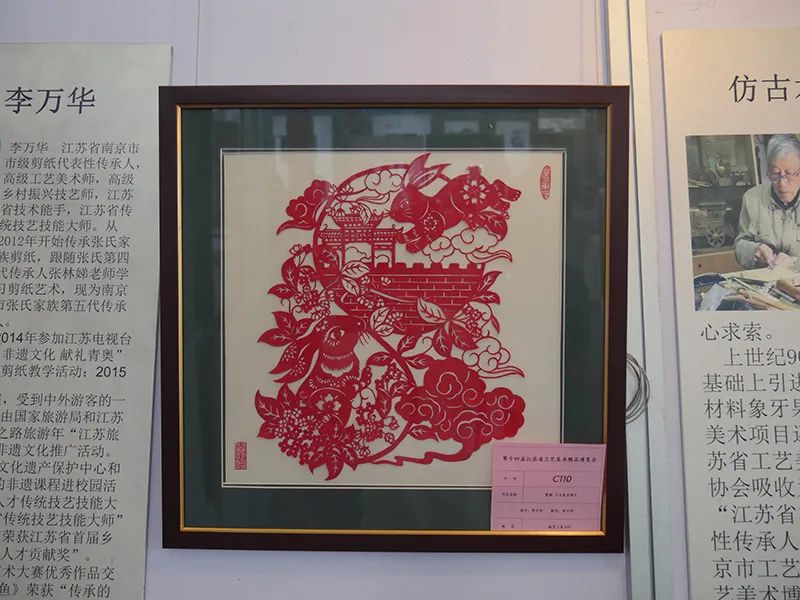 李万华
李万华 江苏省南京市
市级剪纸代表性传承人，
高级工艺美术师，高级
乡村振兴技艺师，江苏
省技术能手，江苏省传
统技艺技能大师。从
2012年开始传承张氏家
族剪纸，跟随张氏第四
代传承人张林娣老师学
习剪纸艺术，现为南京
市张氏家族第五代传承
人。
2014年参加江苏电视台
非遗文化 献礼青奥”
剪纸教学活动；2015
受到中外游客的一
由国家旅游局和江苏
之路旅游年“江苏旅
非遗文化推广活动。
文化遗产保护中心和
的非遗课程进校园活
人才传统技艺技能大
“传统技艺技能大师”
荣获江苏省首届乡
人才贡献奖”。
术大赛优秀作品交
鱼》荣获“传承的
第十四届江苏省工艺美术精品博览会
C110
作品名称
仿古
心求索。
上世纪90
基础上引进
材料象牙果
美术项目
苏省工艺美
协会吸收
“江苏省
性传承人
京市工艺
艺美术博